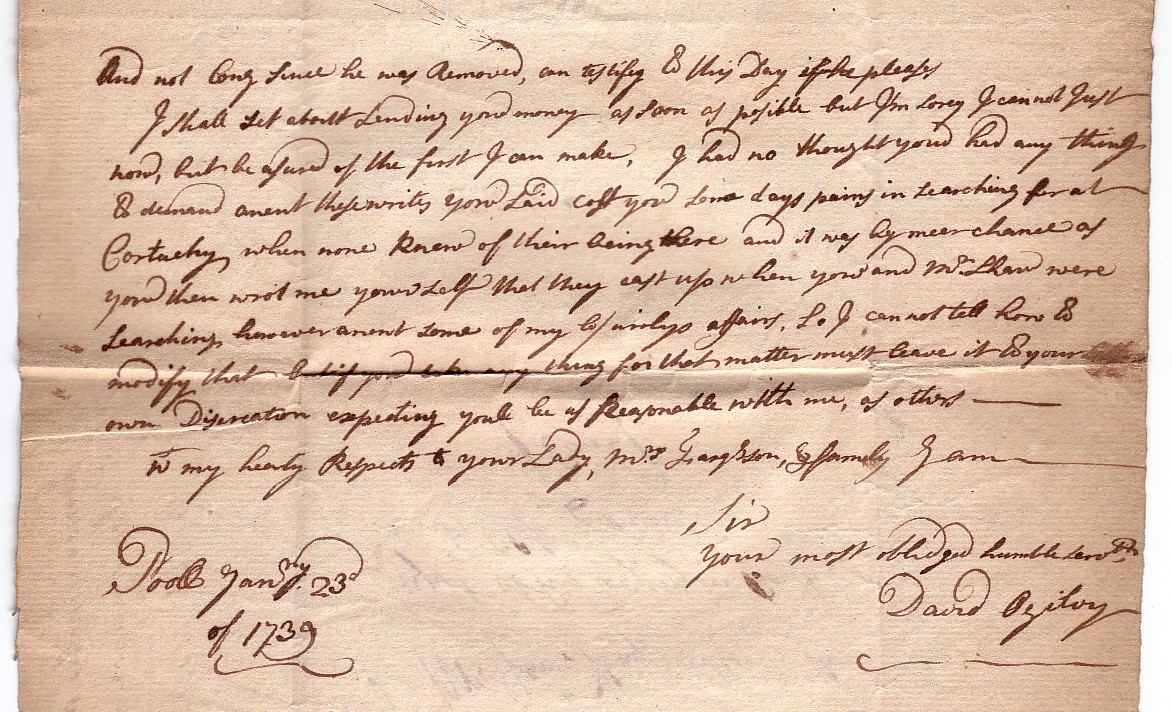 And not long since he was Removed, can testify to this Day if he pleass
I shall set about sending your money as soon as posible but I'm sorey I cannot Just
now, but be asured of the first I can make, I had no thought you'd had any thing
to demand anent these writes you said cost you some days pains in searching for at
Cortachy when none knew of their being there and it was by meer chance as
you then wrot me yourself that they cast up when you and Mr Shaw were
searching however anent some of my affairs, So I cannot tell how to
modify that but if you take any thing for that matter must leave it to your
own Discreation expecting youle be as Reasonable with me, as others
wt my hearty Respects to your Lady, Mrs & family I am
Sir
Your most oblidged humble servt
Pooll Janry 23d
of 1739
David Ogilvy